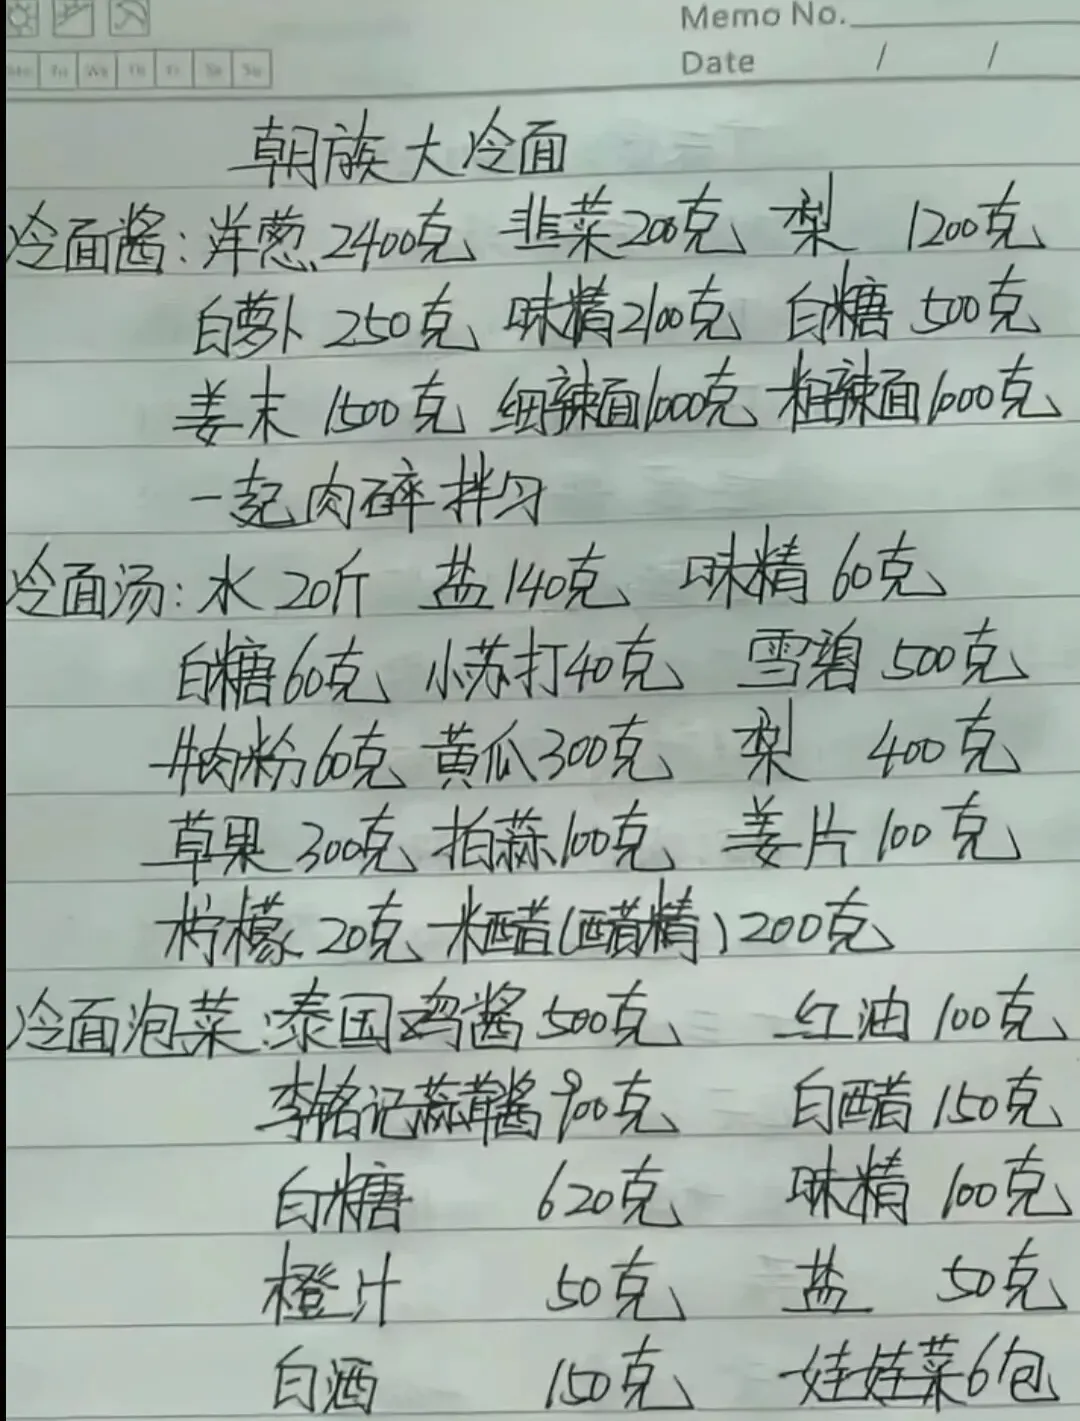 Memo No.
Date / /
Mo Tu We Th Fr Sa Su
朝族大冷面
冷面酱:洋葱2400克 韭菜200克 梨 1200克
白萝卜250克 味精2100克 白糖500克
姜末1500克 细辣面1000克 粗辣面1000克
一起肉碎拌匀
冷面汤:水20斤 盐140克 味精60克
白糖60克 小苏打40克 雪碧500克
牛肉粉60克 黄瓜300克 梨 400克
草果300克 拍蒜100克 姜片100克
柠檬20克 米醋(醋精)200克
冷面泡菜:泰国鸡酱500克 红油100克
李铭记蒜茸酱900克 白醋150克
白糖 620克 味精100克
橙汁 50克 盐 50克
白酒 150克 娃娃菜6包